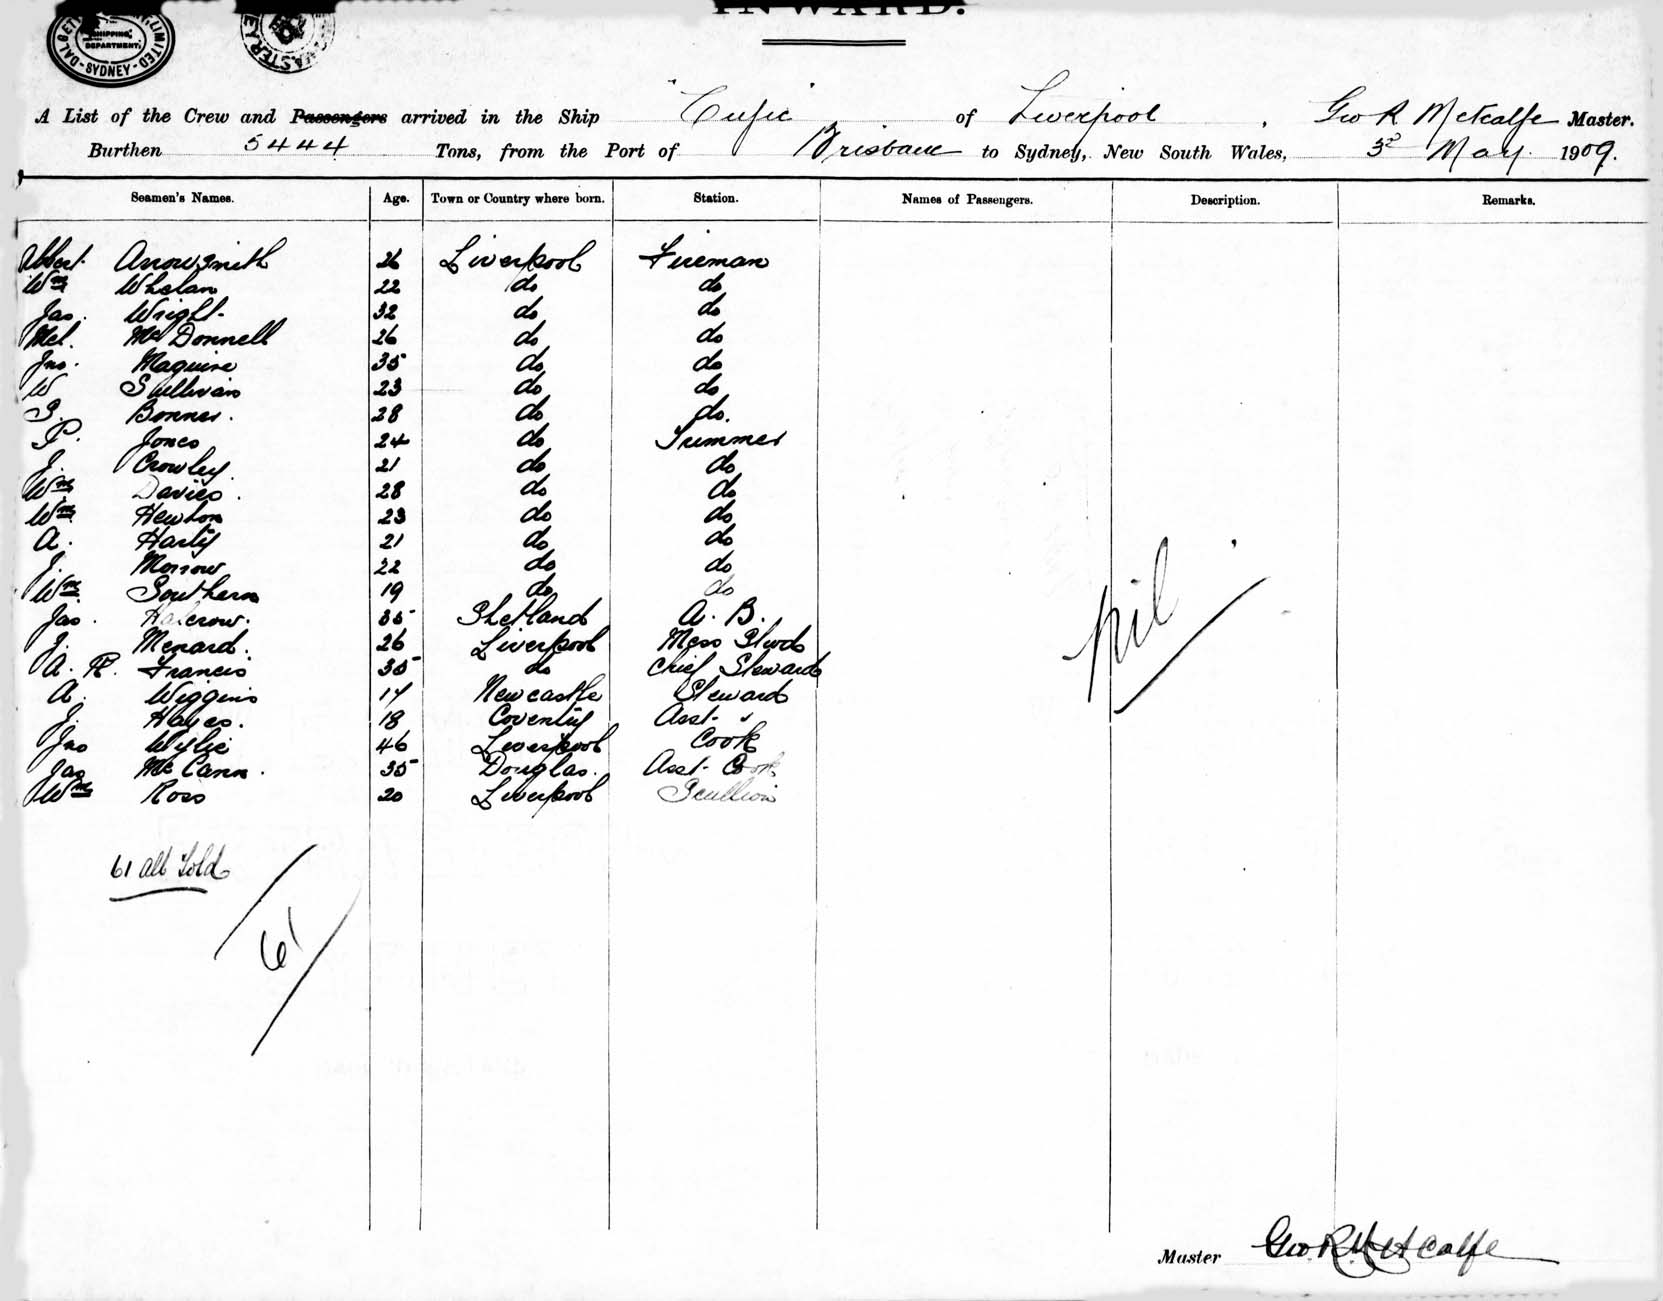 INWARD.
SHIPPING DEPARTMENT.
SYDNEY
A List of the Crew and Passengers arrived in the Ship "Cufic of Liverpool, Geo R Metcalfe Master.
Burthen 5444 Tons, from the Port of Brisbane to Sydney, New South Wales, 3rd May 1909.
Seamen's Names. Age. Town or Country where born. Station. Names of Passengers. Description. Remarks.
Albert Arrowsmith 26 Liverpool Fireman
Wm Whelan 22 do do
Jas. Wright 32 do do
Mcl. McDonnell 26 do do
Jno. Maguire 35 do do
W Sullivan 23 do do
S. Bonner. 28 do do.
P. Jones 24 do Trimmer
J. Crowley 21 do do
Wm Davies. 28 do do
Wm Newton 23 do do
A. Harty 21 do do
J. Morrow 22 do do
Wm Southern 19 do do
Jas. Halcrow. 35 Shetland A. B.
J. Menard. 26 Liverpool Mess Stwd
A. R. Francis 35 do Chief Steward
A. Wiggins 17 Newcastle Steward
J. Hayes. 18 Coventry Asst. "
Jno Wylie 46 Liverpool Cook
Jas McCann. 35 Douglas. Asst. Cook
Wm Ross 20 Liverpool Scullion
nil
61 all told
61
Master Geo. R. Metcalfe